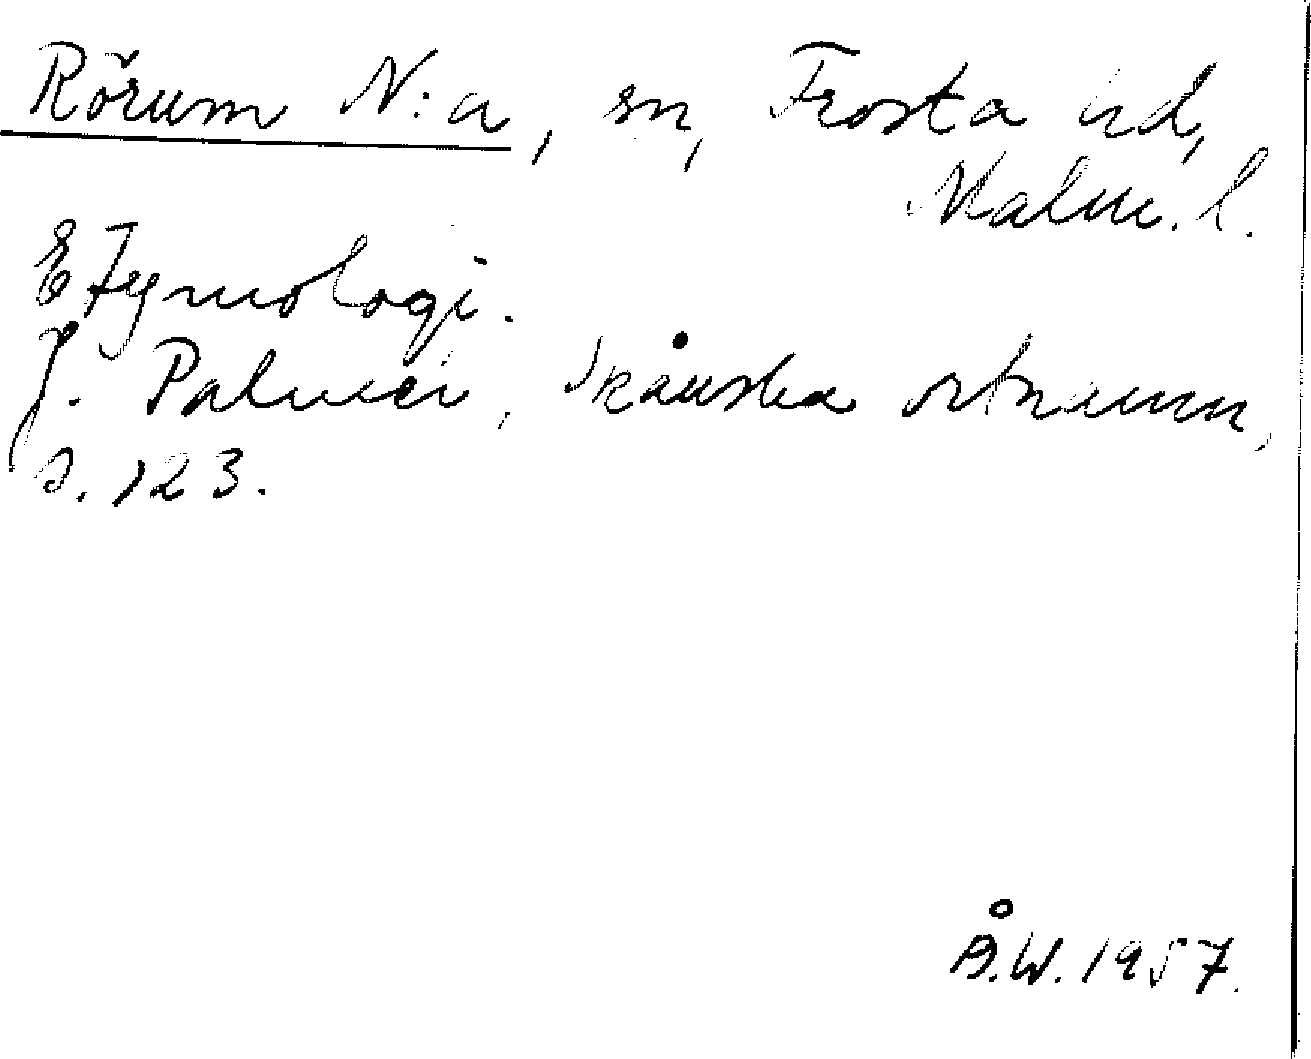 Rörum N:a, sn, Frosta hd,
Malm. l.
Etymologi.
J. Palmér, Skånska ortnamn,
s. 123.
Å.W. 1957.